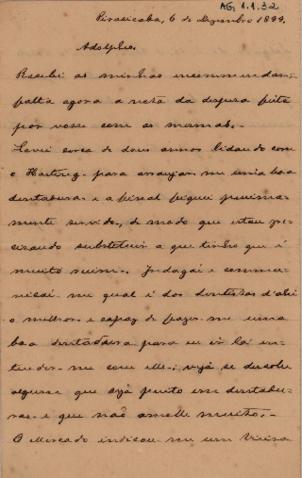 AG. 1.1.32
Piracicaba, 6 de Dezembro 1899.
Adolpho.
Recebi as minhas encommendas
falta agora a nota da despeza feita
por vosse com as mesmas.
Levei cerca de dous annos lidando com
o para arranjar me uma boa
dentadura e a final fiquei pessima-
mente servido, de modo que estou pre-
cizando substituir a que tenho que é
muito ruim. Indagai e commu-
nicai me qual é dos dentistas d'ahi
o melhor e capaz de fazer me uma
boa dentadura para eu ir lá in-
tender me com elle; vejá se descobre
algum que seja perito em dentadu-
ras e que não amolle muito.
O Mercado indicou me um Vieira